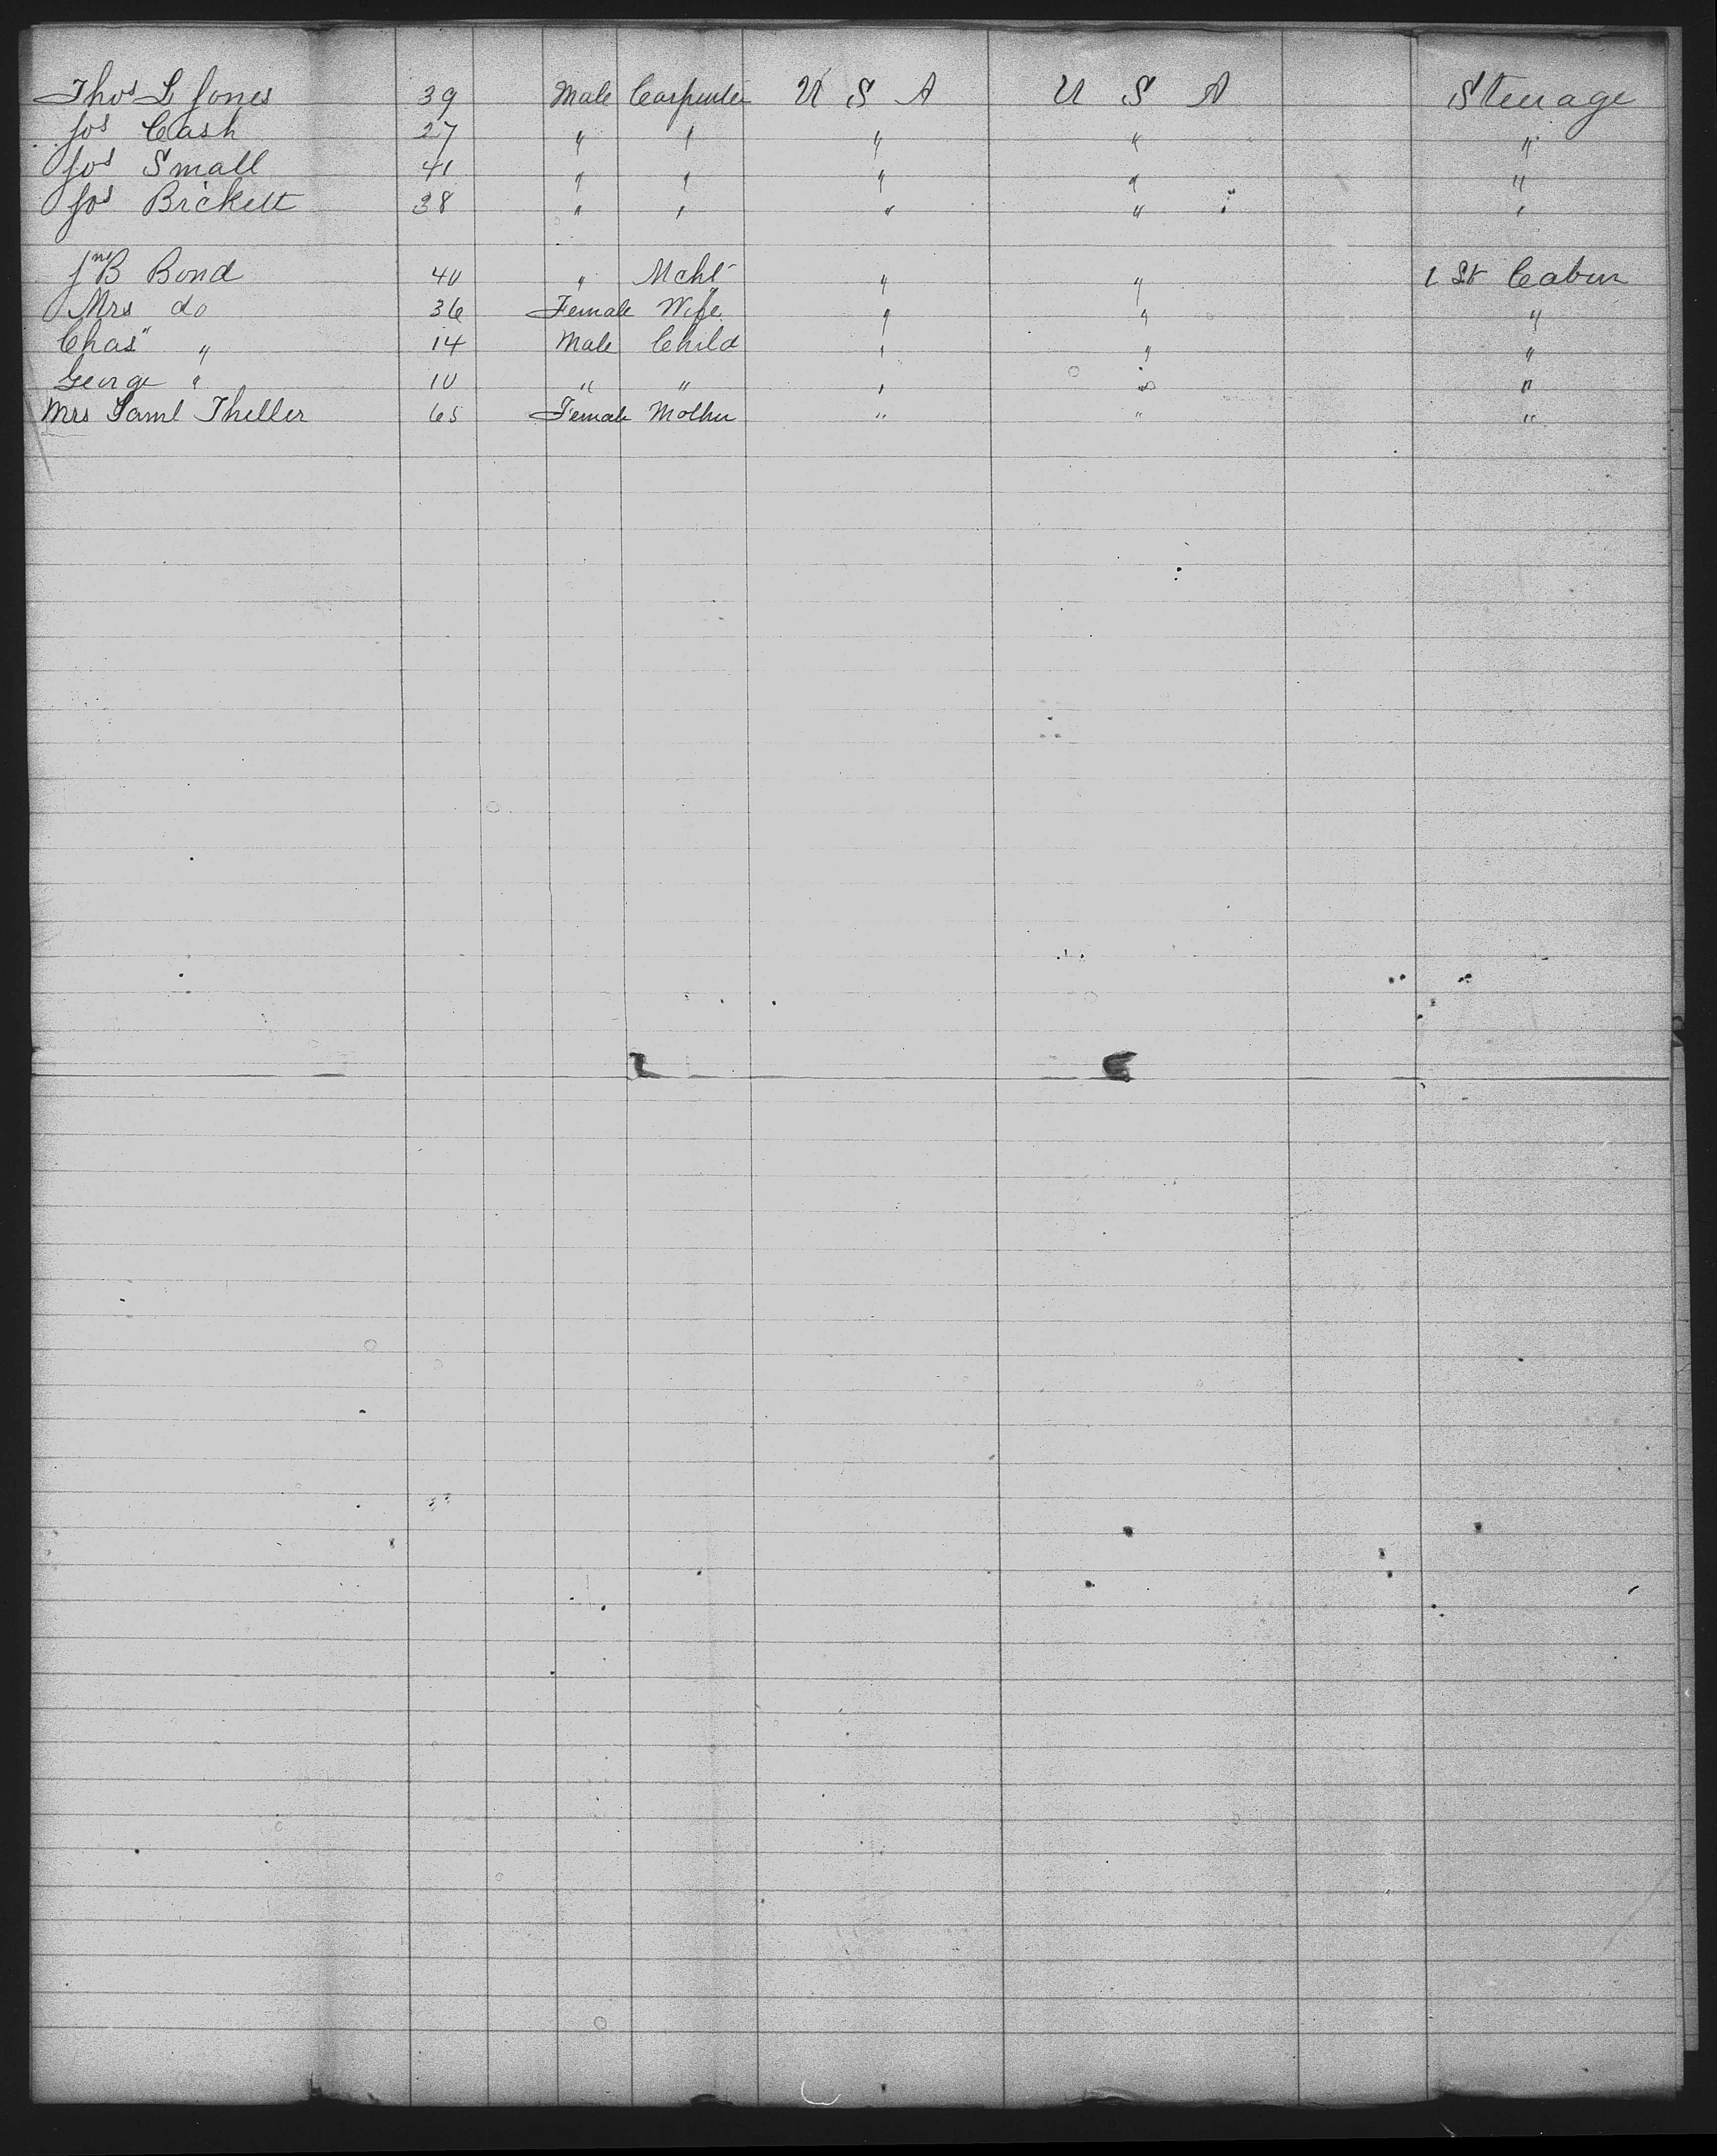 Thos L Jones 39 Male Carpenter U S A U S A Steerage
Jos Cash 27 " " " " "
Jos Small 41 " " " " "
Jos Brickett 38 " " " " "
Jno B Bond 40 " Mcht " " 1 St Cabin
Mrs do 36 Female Wife " " "
Chas " " 14 Male Child " " "
George " 10 " " " " "
Mrs Saml Theller 65 Female Mother " " "